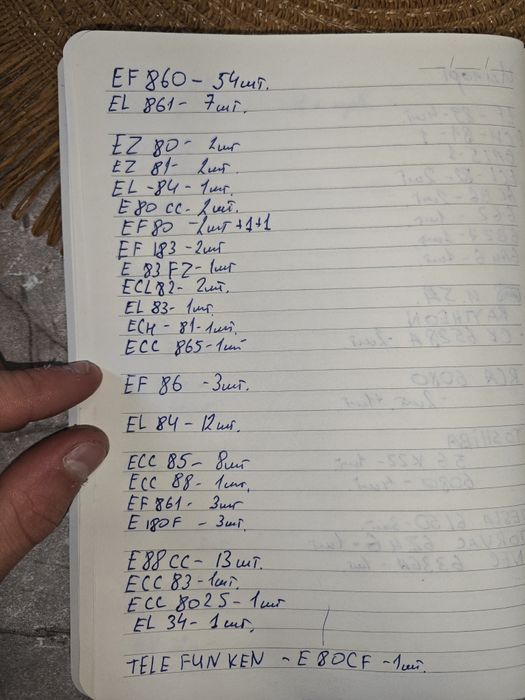 EF 860 - 54шт.
EL 861 - 7шт.
EZ 80 - 2шт
EZ 81 - 2шт.
EL - 84 - 1шт.
E 80 CC - 2шт.
EF 80 - 2шт + 1 + 1
EF 183 - 2шт
E 83 FZ - 1шт
ECL 82 - 2шт.
EL 83 - 1шт.
ECH - 81 - 1шт.
ECC 865 - 1шт
EF 86 - 3шт.
EL 84 - 12шт.
ECC 85 - 8шт
ECC 88 - 1шт.
EF 861 - 3шт
E 180F - 3шт.
E88 CC - 13шт.
ECC 83 - 1шт.
ECC 802S - 1шт
EL 34 - 1шт.
TELEFUNKEN - E 80CF - 1шт.